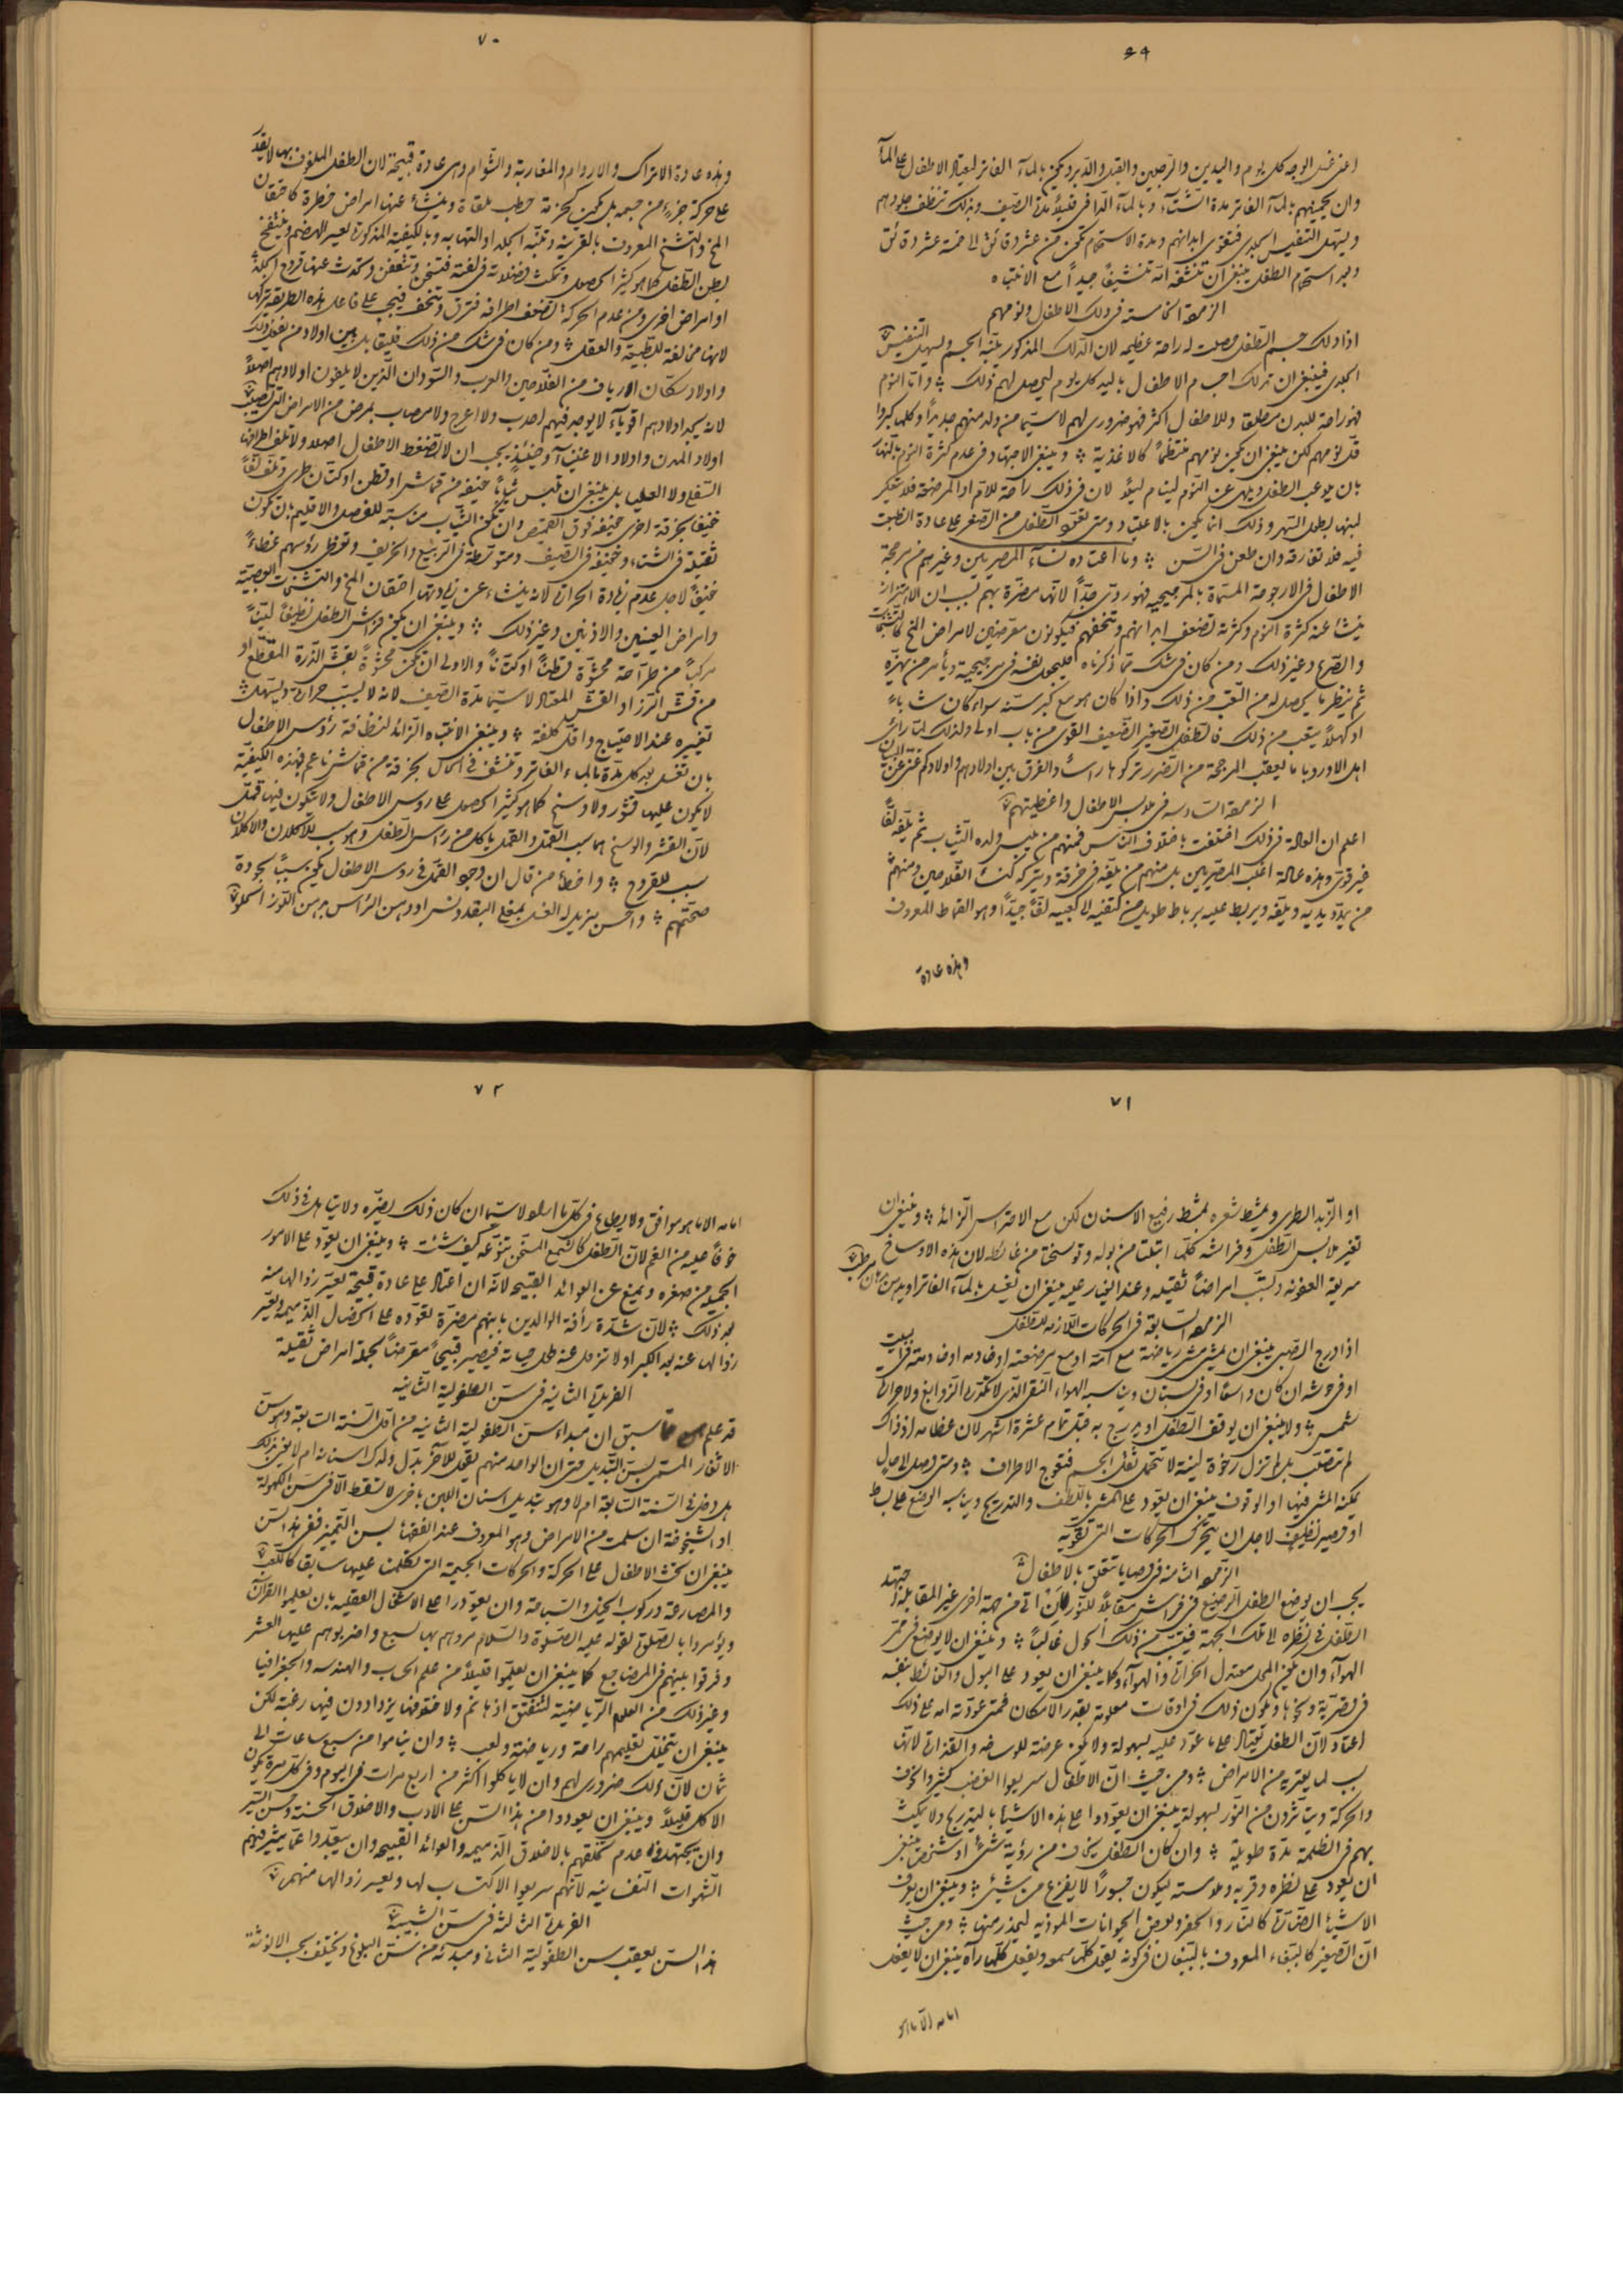 ٦٩
اعنى غسل الوجه كل يوم واليدين والرجلين والقبل والدبر ويكون بالماء الفاتر ليعتاد الاطفال على الماء
وان يحميهم بالماء الفاتر مدة الشتاء وبالماء البارد قليلاً مدة الصيف وبذلك تنظف جلودهم
ويسهل التنفيس الجلدى فتقوى ابدانهم ومدة الاستحمام تكون من عشر دقائق الى خمسة عشر دقائق
وبعد استحمام الطفل ينبغى ان تنشفه امه تنشيفاً جيداً مع الانتباه
الزمرة الخامسة فى دلك الاطفال ونومهم
اذا دلك جسم الطفل حصلت له راحة عظيمه لان الدلك المذكور ينبّه الجسم ويسهل التنفيس
الجلدى فينبغى ان تدلك اجسام الاطفال باليد كل يوم ليحصل لهم ذلك واما النوم
فهو راحة للبدن مطلقا وللاطفال اكثر فهو ضرورى لهم لاسيما من ولد منهم جديداً وكلما كبروا
قل نومهم لكن ينبغى ان يكون نومهم منتظماً كالاغذية وينبغى الاجتهاد فى عدم كثرة النوم بالنهار
بان يلاعب الطفل ويلهى عن النوم لينام ليلاً لان فى ذلك راحة للام او المرضعة فلا يتعكر
لبنها بطول السهر وذلك انما يكون بالاعتياد ومتى تعوّد الطفل من الصغر على عادة انطبعت
فيه فلا تفارقه وان طعن فى السن وما اعتاده نساء المصريين وغيرهم من مرجحة
الاطفال فى الارجوحة المسماة بالمرجيحيه فهو ردى جداً لانها مضرة بهم بسبب ان الاهتزاز
ينشأ عنه كثرة النوم وكثرته تضعف ابدانهم وتنحفهم فيكونون معرضين لامراض المخ كالتشنجات
والصرع وغير ذلك ومن كان فى شك مما ذكرناه فليجعل نفسه فى مرجيحية ويأمر من يهزه
ثم ينظر ما يحصل له من التعب من ذلك واذا كان هو مع كبر سنه سواء كان شاباً
او كهلاً يتعب من ذلك فالطفل الصغير الضعيف القوى من باب اولى ولذلك لما رأى
اهل الاوروبا ما يعقب المرجحة من الضرر تركوها رأساً والفرق بين اولادهم واولادكم غنى عن البيان
الزمرة السادسه فى ملابس الاطفال واغطيتهم
اعلم ان العادة فى ذلك اختلفت باختلاف الناس فمنهم من يلبس ولده الثياب ثم يلفه لفاً
غير قوى وهذه عادة اغلب المصريين بل منهم من يلفه فى خرقة ويتركه كنساء الفلاحين ومنهم
من يمد يديه ويلفه ويربط عليه برباط طويل من كتفيه الى كعبيه لفاً جيداً وهو القماط المعروف
وهذه عادة
٧٠
وهذه عادة الاتراك والاروام والمغاربة والشوام وهى عادة قبيحة لان الطفل الملفوف بها لا يقدر
على حركة جزء من جسمه بل يكون كحزمة حطب ملقاة وينشأ عنها امراض خطرة كاحتقان
المخ والتشنج المعروف بالقرينة وتنبّه الجلد او التهابه وبالكيفية المذكورة يعسر الهضم وينتفخ
بطن الطفل كما هو كثير الحصول وتمكث فضلاته فى لفته فتسخن وتتعفن وتحدث عنها قروح الجلد
او امراض اخرى ومن عدم الحركة تضعف اطرافه فترق وتنحف فيجب على فاعل هذه الطريقة تركها
لانها مخالفة للطبيعة والعقل ومن كان فى شك من ذلك فليقابل بين اولاد من يفعل ذلك
واولاد سكان الارياف من الفلاحين والعرب والسودان الذين لا يلفون اولادهم اصلاً
لانه يجد اولادهم اقوياء لا يوجد فيهم احدب ولا اعرج ولا مصاب بمرض من الامراض التى تصيب
اولاد المدن واولاد الاغنياء وحينئذ يجب ان لا تضغط الاطفال اصلا ولا تلف اطرافها
السفلى ولا العليا بل ينبغى ان تلبس ثياباً خفيفه من قماش او قطن او كتان طرى وتلف لفاً
خفيفا بخرقة اخرى خفيفه فوق القميص وان تكون الثياب مناسبة للفصل والاقليم بان تكون
ثقيلة فى الشتاء وخفيفه فى الصيف ومتوسطة فى الربيع والخريف وتغطى رؤسهم غطاء
خفيفاً لاجل عدم زيادة الحرارة لانه ينشاء عن زيادتها احتقان المخ والتشنجات العصبية
وامراض العينين والاذنين وغير ذلك وينبغى ان يكون فراش الطفل نظيفاً ليناً
مركباً من طراحة محشوة قطناً او كتاناً والاولى ان تكون محشوة بقش الذرة المقطع او
من قش الرز او القش المعتاد لاسيما مدة الصيف لانه لا يسبب حرارة ويسهل
تغييره عند الاحتياج واقل كلفة وينبغى الانتباه الزائد لنظافة رؤس الاطفال
بان تغسل بعد كل مدة بالماء الفاتر وتنشف فى الحال بخرقة من قماش ناعم فبهذه الكيفية
لا يكون عليها قشور ولا وسخ كما هو كثير الحصول على روس الاطفال ولا يتكون فيها قمل
لان القشر والوسخ هما سبب القمل والقمل ياكل من رأس الطفل وهو سبب للاكلان والاكلان
سبب للقروح واخطأ من قال ان وجود القمل فى روس الاطفال يكون سبباً لجودة
صحتهم واحسن مزيل له الغسل بمغلى البقدونس او دهن الرأس بدهن اللوز الحلو
٧١
او الزبد الطرى ويمشط شعره بمشط رفيع الاسنان لكن مع الاحتراس الزائد وينبغى ان
تغير ملابس الطفل وفراشه كلما ابتلت من بوله وتوسخت من غائطه لان هذه الاوساخ
سريعة العفونه وتسبب امراضاً ثقيله وعند التغيار عليه ينبغى ان يغسل بالماء الفاتر او يدهن بدهن مرطب
الزمرة السابعة فى الحركات اللازمه للطفل
اذا درج الصبى ينبغى ان يمشى مشى رياضة مع امه او مع مرضعته او خادمه او خادمته فى البيت
او فى حوشه ان كان واسعاً او فى بستان ويناسبه الهواء النقى الذى لا تكدره الزوابع ولا حرارة
شمس ولا ينبغى ان يوقف الطفل او يدرج به قبل تمام عشرة اشهر لان عظامه اذ ذاك
لم تتصلب بل لم تزل رخوة لينة لا تتحمل ثقل الجسم فتعوج الاطراف ومتى وصل الى حال
يمكنه المشى فيها او الوقوف ينبغى ان يعود على المشى باللطف والتدريج ويناسبه الوضع على بساط
او حصير نظيف لاجل ان يتحرك الحركات التى تقويه
الزمرة الثامنة فى وصايا تتعلق بالاطفال
يجب ان يوضع الطفل الرضيع فى فراش مقابلاً للنور لانه ان اتى من جهة اخرى غير المقابلة اجتهد
الطفل فى نظره الى تلك الجهة فينشأ من ذلك الحول غالباً وينبغى ان لا يوضع فى ممر
الهواء وان يكون المحل معتدل الحرارة والهواء وكما ينبغى ان يعود على البول والغائط بنفسه
فى قصرية ونحوها ويكون ذلك فى اوقات معلومة بقدر الامكان فمتى عودته امه على ذلك
اعتاد لان الطفل يعتاد على ما عوّد عليه بسهولة ولا يكون عرضة للوساخه والقذارة لانها
سبب لما يعتريه من الامراض ومن حيث ان الاطفال سريعوا الغضب كثيروا الخوف
والحركة ويتأثرون من النور بسهولة ينبغى ان يعودوا على هذه الاشياء بالتدريج ولا يمكث
بهم فى الظلمة مدة طويلة وان كان الطفل يخاف من رؤية شئ او شخص ينبغى
ان يعود على نظره وقربه وملامسته ليكون جسوراً لا يفزع من شئ وينبغى ان يعرف
الاشياء الضارة كالنار والحفر وبعض الحيوانات الموذيه ليحذر منها ومن حيث
ان الصغير كالببغاء المعروف بالببغان فى كونه يقول كلما سمعه ويفعل كلما رآه ينبغى ان لا يفعل
امامه الا ما هو
٧٢
امامه الا ما هو موافق ولا يطاع فى كل ما اراده لاسيما ان كان ذلك يضره ولا يتساهل فى ذلك
خوفاً عليه من الغم لان الطفل كالشمع المسخن تنوعه كيف شئت وينبغى ان يعود على الامور
الجميله من صغره ويمنع عن العوائد القبيحه لانه ان اعتاد على عادة قبيحة يعسر زوالها منه
بعد ذلك لان شدة رأفة الوالدين بابنهم مضرة لتعوده على الخصال الذميمه ويعسر
زوالها عنه بعد الكبر او لا تزول عنه طول حياته فيصير قبيحاً معرضاً لجملة امراض ثقيلة
الفريدة الثانيه فى سن الطفولية الثانيه
قد علم مما سبق ان مبداء سن الطفولية الثانيه من اول السنة السابعة وهو سن
الاثغار المسمى بسن التبديل حتى ان الواحد منهم يقول للاخر بدل ولدك اسنانه ام لا يعنى بذلك
هل دخل فى السنة السابعة ام لا وهو تبديل اسنان اللبن باخرى لا تسقط الا فى سن الكهولة
او الشيخوخة ان سلمت من الامراض وهو المعروف عند الفقهاء بسن التمييز ففى هذا السن
ينبغى ان تحث الاطفال على الحركة والحركات الجسمية التى تكلمت عليها سابقا كاللعب
والمصارعة وركوب الخيل والسباحة وان يعودوا على الاشغال العقليه بان يعلموا القرآن
ويؤمروا بالصلوة لقوله عليه الصلوة والسلام مروهم بها لسبع واضربوهم عليها لعشر
وفرقوا بينهم فى المضاجع كما ينبغى ان يعلموا قليلاً من علم الحساب والهندسه والجغرافيا
وغير ذلك من العلوم الرياضيه لتتفتق اذهانهم ولا خفا انها يزدادون فيها رغبة لكن
ينبغى ان يتخلل تعليمهم راحة ورياضة ولعب وان يناموا من سبع ساعات الى
ثمان لان ذلك ضرورى لهم وان لا ياكلوا اكثر من اربع مرات فى اليوم وفى كل مرة يكون
الاكل قليلاً وينبغى ان يعودوا من هذا السن على الادب والاخلاق الحسنة وحسن السير
وان يجتهد فى عدم تخلقهم بالاخلاق الذميمه والعوائد القبيحه وان يبعدوا عما يثير فيهم
الشهوات النفسانيه لانهم سريعوا الاكتساب لها ويعسر زوالها منهم
الفريدة الثالثة فى سن الشبيبة
هذا السن يعقب سن الطفولية الثانى ومبدئه من سن البلوغ ويختلف بحسب الانوثة